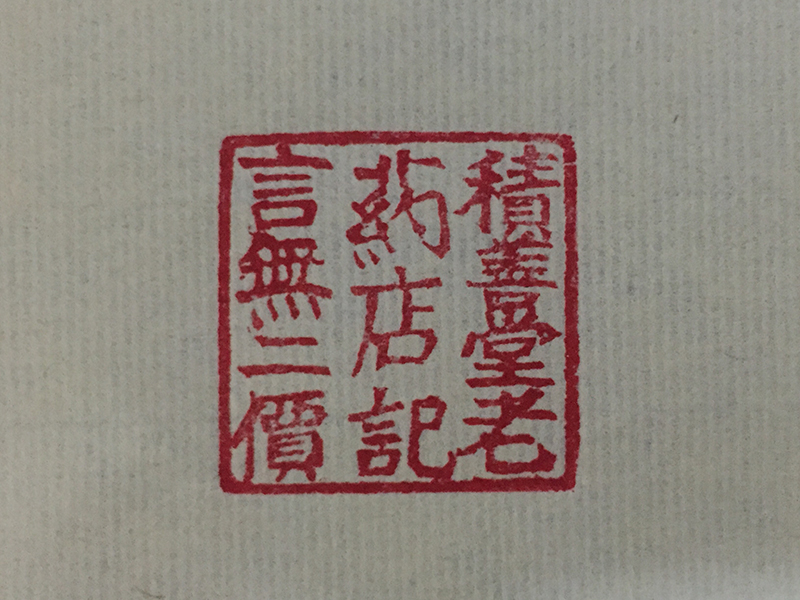 積善堂老
药店記
言無二價